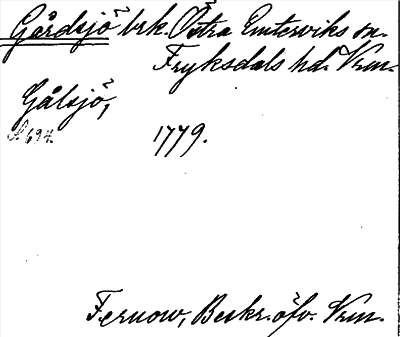 Gårdsjö brk. Östra Emterviks sn.
Fryksdals hd. Vrm.
Gålsjö,
S. 694. 1779.
Fernow, Beskr. öfv. Vrm.